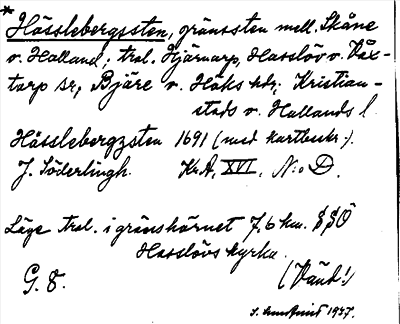 * Hösslebergssten, gränssten mell. Skåne
o. Halland; tral. Hjärnarp, Hasslöv o. Våx-
torp sr, Bjäre o. Höks hdr. Kristian-
stads o. Hallands l.
Hösslebergzsten 1691 (med kartbeskr.).
J. Söderlingh. Kr.A, XVI, N:o D.
Läge tral. i gränshörnet 7,6 km. SSÖ
Hasslövs kyrka.
G. 8. (Vänd!)
1937.